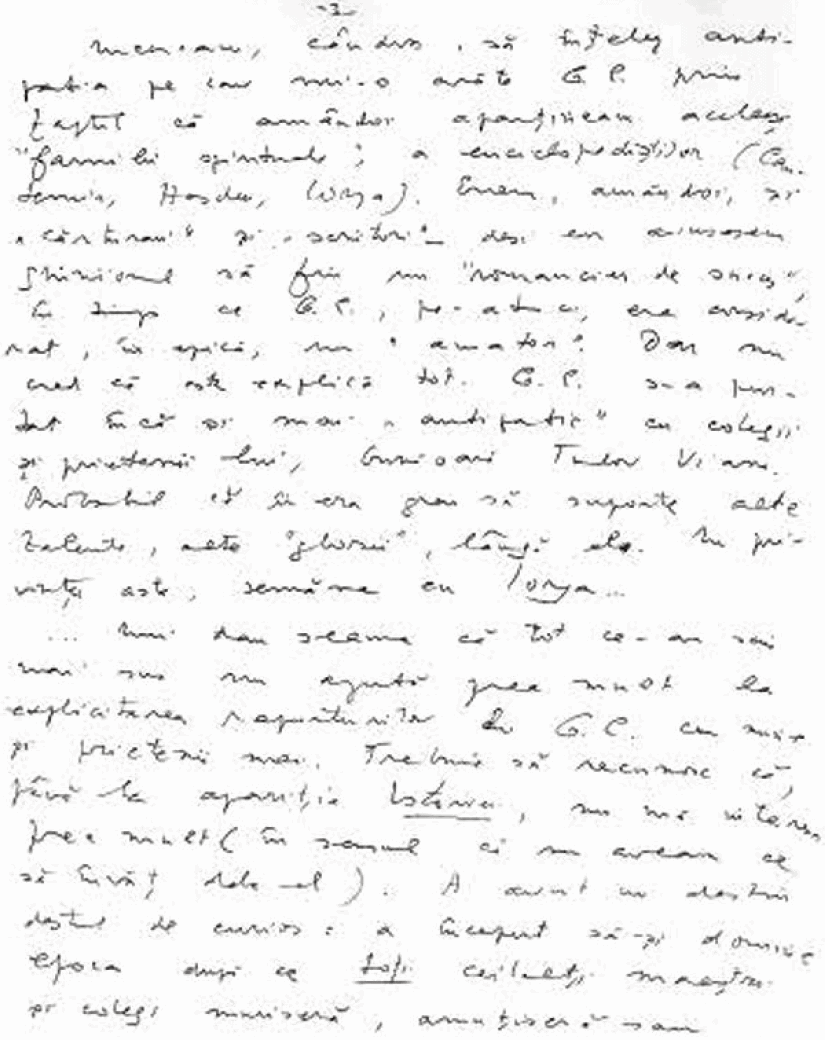 -2-
Încercam, cândva, să înțeleg anti-
patia pe care mi-o arăta G.C. prin
faptul că amândoi aparțineam aceleași
"familii spirituale": a enciclopediștilor (Can-
temir, Hasdeu, Iorga). Eram, amândoi, și
"cărturari" și "scriitori" – deși eu avusesem
ghinionul să fiu un "romancier de succes",
în timp ce G.C., pe-atunci, era conside-
rat, în epică, un "amator". Dar nu
cred că asta explică tot. G.C. s-a pur-
tat încă și mai "antipatic" cu colegii
și prietenii lui, bunăoară Tudor Vianu.
Probabil că îi era greu să suporte alte
talente, alte "glorii", lângă el. În pri-
vința asta, semăna cu Iorga...
... Îmi dau seama că tot ce-am scris
mai sus nu ajută prea mult la
explicitarea raporturilor lui G.C. cu mine
și prietenii mei. Trebuie să recunosc că,
până la apariția Istoriei, nu mă interesa
prea mult (în sensul că nu aveam ce
să învăț dela el). A avut un destin
destul de curios: a început să-și domine
epoca după ce toți ceilalți maeștri
și colegi muriseră, amuțiseră sau